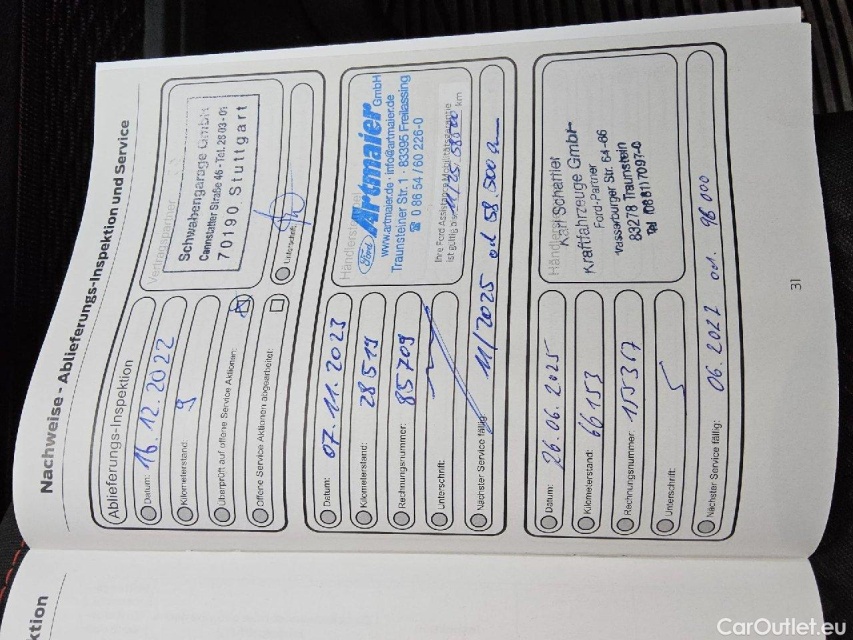 Nachweise - Ablieferungs-Inspektion und Service
Ablieferungs-Inspektion
Datum: 16.12.2022
Kilometerstand: 9
Überprüft auf offene Service Aktionen:
Offene Service Aktionen abgearbeitet:
Vertragspartner
Schwabengarage GmbH
Cannstatter Straße 46 - Tel. 28 03-0
70190 Stuttgart
Unterschrift:
Datum: 07.11.2023
Kilometerstand: 28519
Rechnungsnummer: 85709
Unterschrift:
Nächster Service fällig: 11/2025 od 58.500 km
Händlerstempel
Ford Artmaier GmbH
www.artmaier.de · info@artmaier.de
Traunsteiner Str. 1 · 83395 Freilassing
☎ 0 86 54 / 60 226-0
Ihre Ford Assistance Mobilitätsgarantie
ist gültig bis 11/25 58500 km
Datum: 26.06.2025
Kilometerstand: 66153
Rechnungsnummer: 155367
Unterschrift:
Nächster Service fällig: 06.2027 od. 96000
Karl Scharrer
Kraftfahrzeuge GmbH
Ford-Partner
Wasserburger Str. 64-66
83278 Traunstein
Tel. 0861/7097-0
31
ktion
CarOutlet.eu